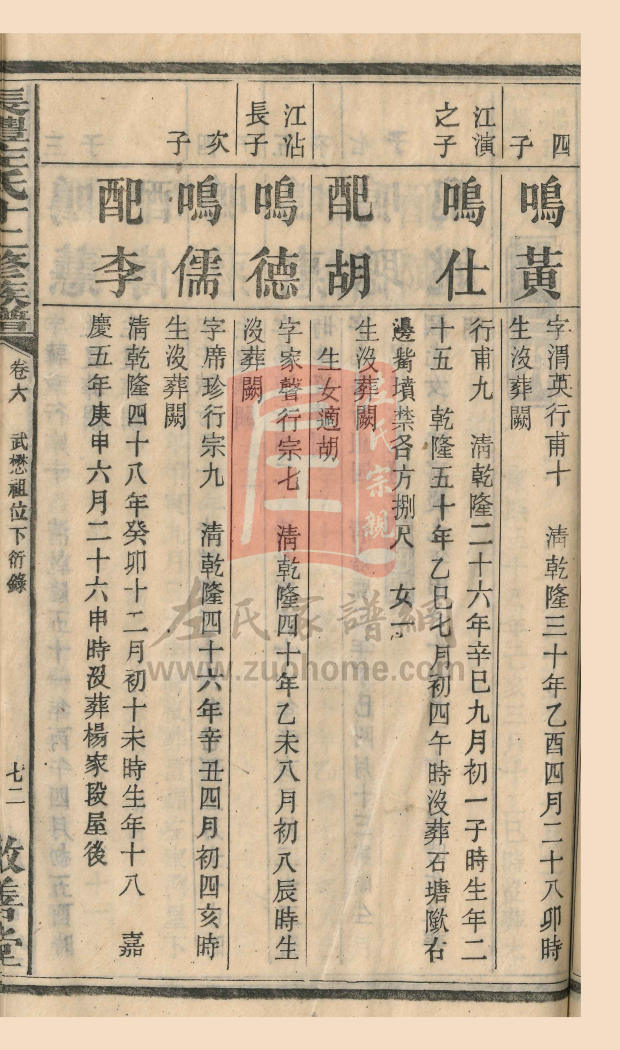 四
子
鳴黃
字渭英行甫十 清乾隆三十年乙酉四月二十八卯時
生沒葬闕
江演
之子
鳴仕
行甫九 清乾隆二十六年辛巳九月初一子時生年二
十五 乾隆五十年乙巳七月初四午時沒葬石塘歐右
邊觜墳禁各方捌尺 女一
配胡
生沒葬闕
生女適胡
江沾
長子
鳴德
字家聲行宗七 清乾隆四十年乙未八月初八辰時生
沒葬闕
次
子
鳴儒
字席珍行宗九 清乾隆四十六年辛丑四月初四亥時
生沒葬闕
配李
清乾隆四十八年癸卯十二月初十未時生年十八 嘉
慶五年庚申六月二十六申時沒葬楊家段屋後
左氏十二修族譜
卷六 武懋祖位下衍錄
七二
敦善堂
左氏宗親
左氏家譜網
www.zuohome.com